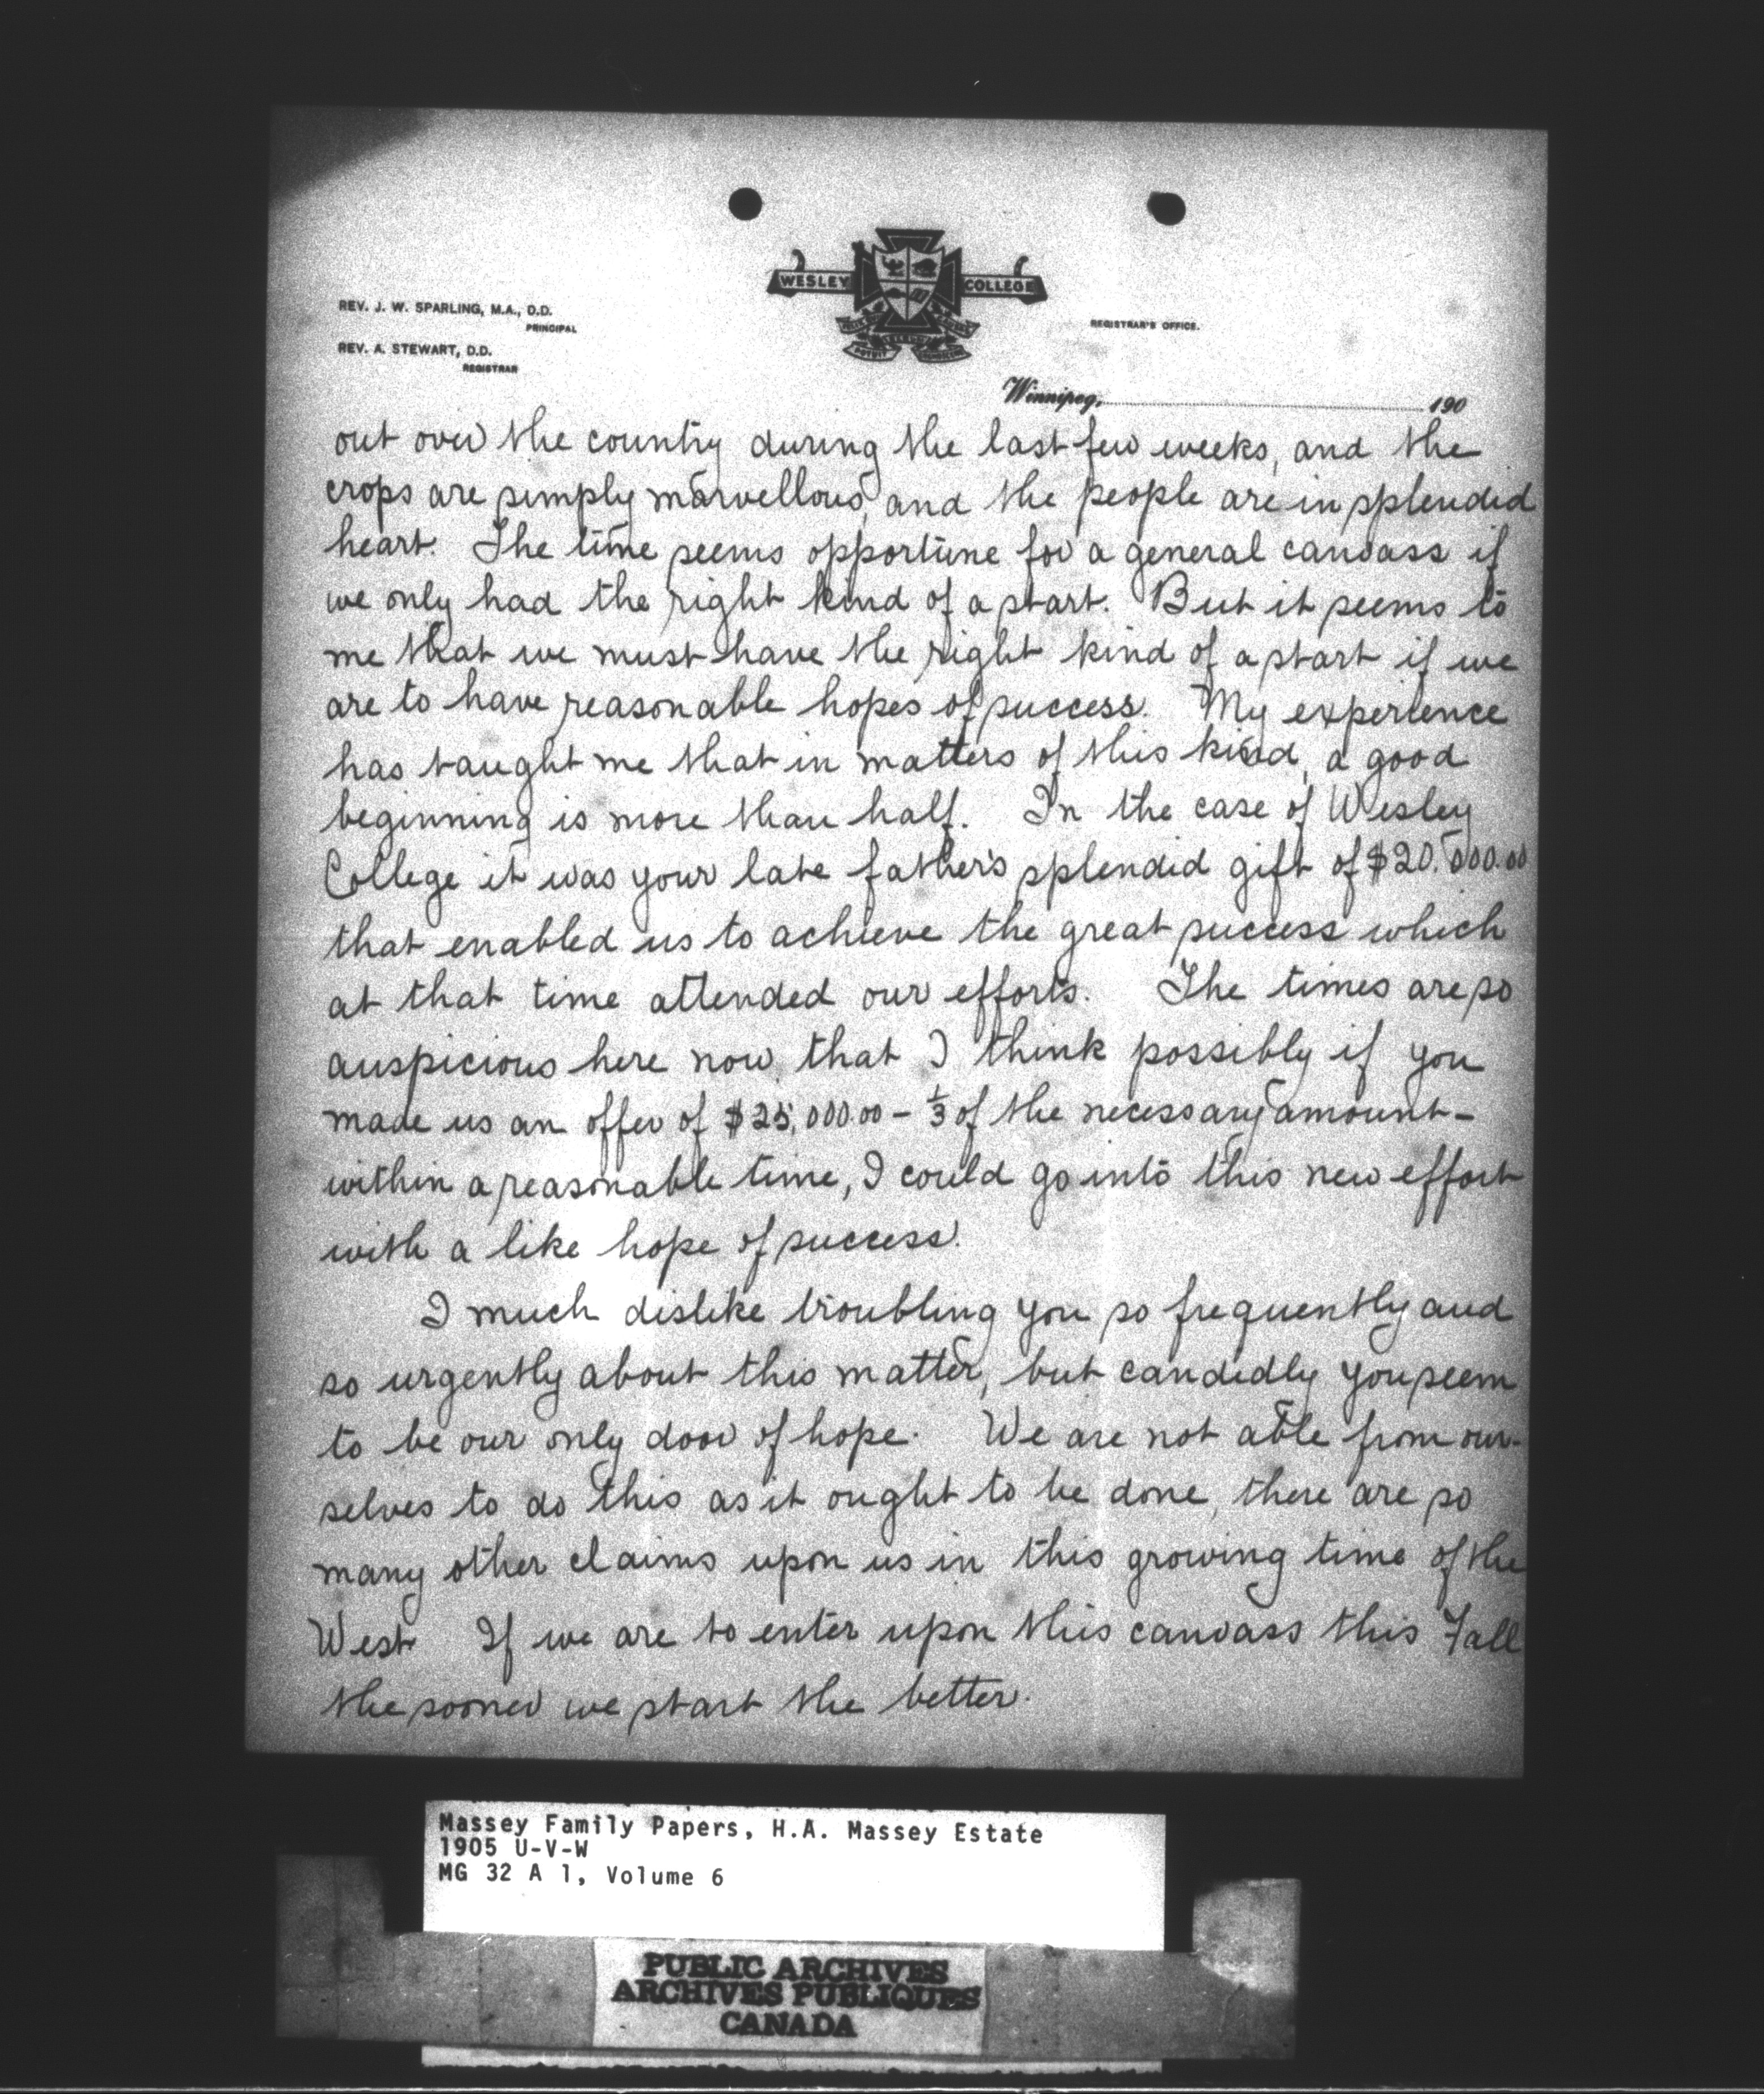 REV. J. W. SPARLING, M.A., D.D.
PRINCIPAL
REV. A. STEWART, D.D.
REGISTRAR
WESLEY COLLEGE
REGISTRAR'S OFFICE.
Winnipeg, 190
out over the country during the last few weeks, and the
crops are simply marvellous, and the people are in splendid
heart. The time seems opportune for a general canvass if
we only had the right kind of a start. But it seems to
me that we must have the right kind of a start if we
are to have reasonable hopes of success. My experience
has taught me that in matters of this kind, a good
beginning is more than half. In the case of Wesley
College it was your late father's splendid gift of $20,000.00
that enabled us to achieve the great success which
at that time attended our efforts. The times are so
auspicious here now that I think possibly if you
made us an offer of $25,000.00 – 1/3 of the necessary amount –
within a reasonable time, I could go into this new effort
with a like hope of success.
I much dislike troubling you so frequently and
so urgently about this matter, but candidly you seem
to be our only door of hope. We are not able from our-
selves to do this as it ought to be done, there are so
many other claims upon us in this growing time of the
West. If we are to enter upon this canvass this Fall
the sooner we start the better.
Massey Family Papers, H.A. Massey Estate
1905 U-V-W
MG 32 A 1, Volume 6
PUBLIC ARCHIVES
ARCHIVES PUBLIQUES
CANADA